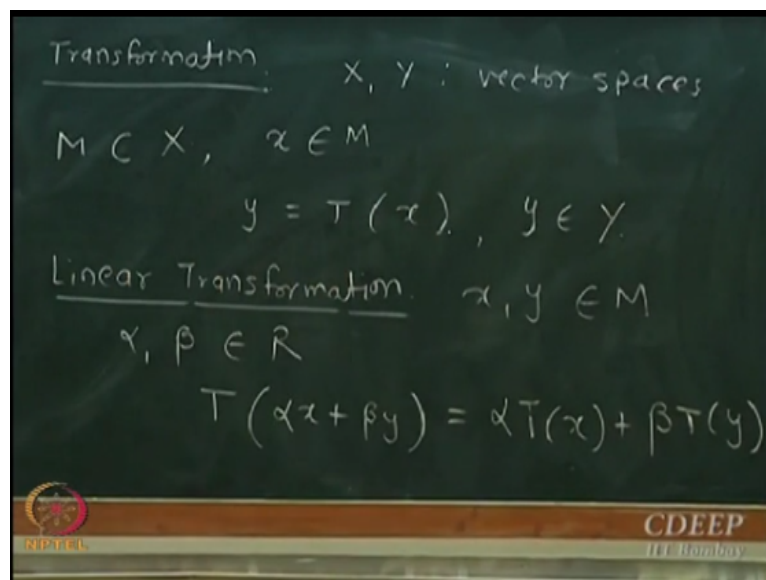 Transformation. X, Y : vector spaces
M ⊂ X, x ∈ M
y = T(x), y ∈ Y.
Linear Transformation. x, y ∈ M
α, β ∈ R
T(αx + βy) = αT(x) + βT(y)
NPTEL
CDEEP
IIT Bombay